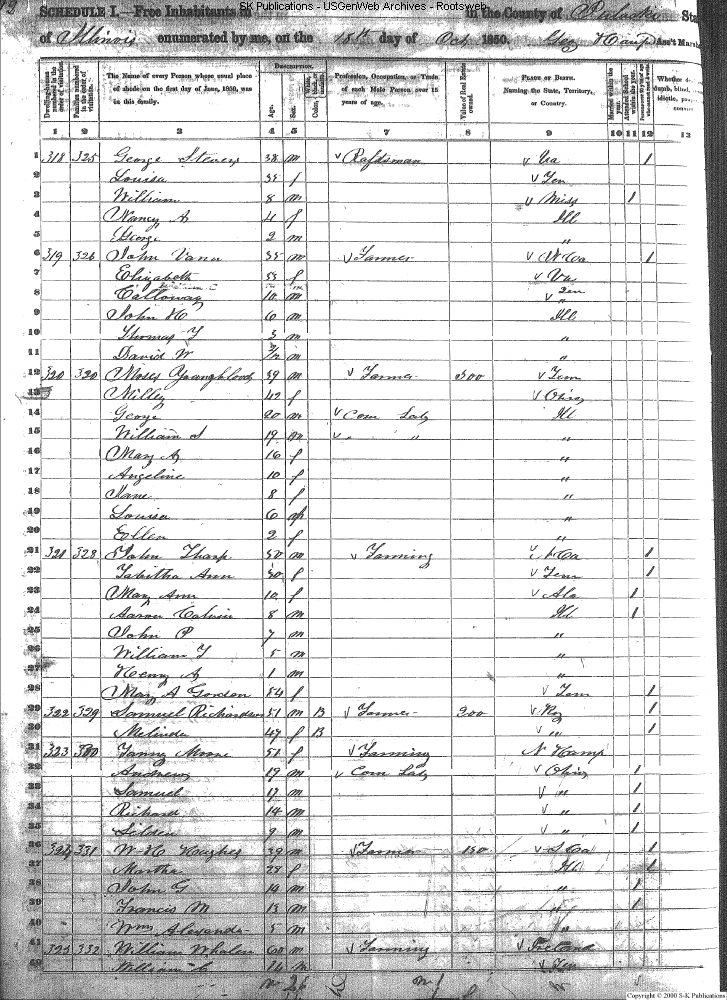 SK Publications - USGenWeb Archives - Rootsweb
SCHEDULE I.—Free Inhabitants in in the County of Pulaski Sta
of Illinois enumerated by me, on the 18th day of Oct 1850. Ass't Marsh
Dwelling-houses numbered in the order of visitation. Families numbered in the order of visitation. The Name of every Person whose usual place of abode on the first day of June, 1850, was in this family. Description. Age. Sex. Color, Profession, Occupation, or Trade of each Male Person over 15 years of age. Value of Real Estate owned. Place of Birth. Naming the State, Territory, or Country. Married within the year. Attended School within the year. Whether d
1 2 3 4 5 6 7 8 9 10 11 12 13
1 318 325 George Stevers 38 m Raftsman Va 1
2 Louisa 35 f Ten
3 William 8 m Miss 1
4 Nancy A 4 f Ill
5 George 2 m "
6 319 326 John Vana 35 m Farmer N Ca 1
7 Elizabeth 33 f Va
8 Calloway 10 m Ten
9 John H 6 m Ill
10 Thomas J 3 m "
11 David W 2/12 m "
12 320 320 Moses Youngblood 39 m Farmer 300 Tenn
13 Milley 42 f Ohio
14 George 20 m Com Lab Ill
15 William S 19 m " " "
16 Mary A 16 f "
17 Angeline 10 f "
18 Jane 8 f "
19 Louisa 6 f "
20 Ellen 2 f "
21 321 328 John Tharp 50 m Farming N Ca 1
22 Tabitha Ann 30 f Tenn 1
23 Mary Ann 10 f Ala 1
24 Aaron Calvin 8 m Ill 1
25 John P 7 m "
26 William J 5 m "
27 Henry A 1 m "
28 Mary A Gordon 54 f Tenn 1
29 322 329 Samuel Richardson 51 m B Farmer 200 Ky 1
30 Melinda 47 f B " 1
31 323 330 Fanny Moore 51 f Farming N Hamp
32 Andrew 19 m Com Lab Ohio 1
33 Samuel 17 m " 1
34 Richard 14 m " 1
35 9 m " 1
36 324 331 W H Hughes 39 m Farmer 150 S Ca 1
37 Martha 28 f Ill 1
38 John G 10 m " 1
39 Francis M 13 m " 1
40 Wm Alexander 5 m "
41 325 332 William Whalen 60 m Farming Ireland 1
42 William C 14 m Ken
Copyright © 2000 S-K Publications